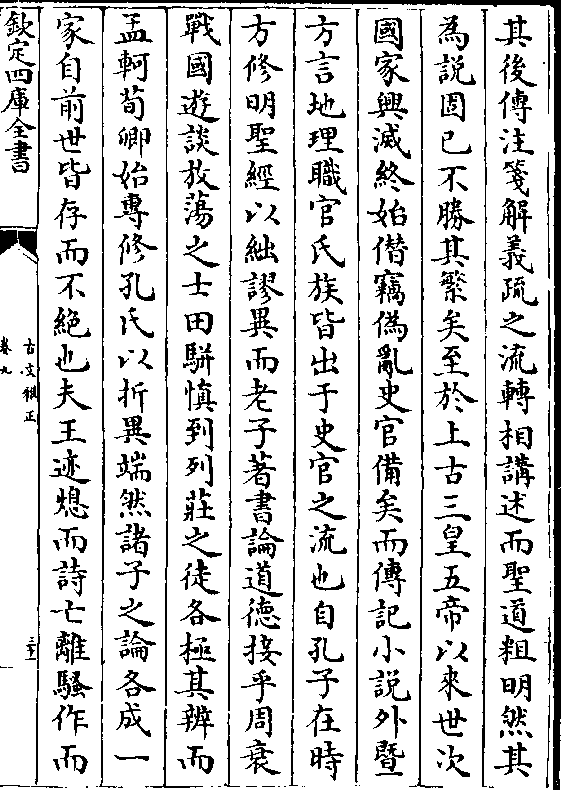 其後傳注箋解義疏之流轉相講述而聖道粗明然其
為説固已不勝其繁矣至於上古三皇五帝以來世次
國家興滅終始僭竊偽亂史官備矣而傳記小説外暨
方言地理職官氏族皆出于史官之流也自孔子在時
方修明聖經以絀謬異而老子著書論道德接乎周衰
戰國遊談放蕩之士田駢慎到列莊之徒各極其辨而
孟軻荀卿始專修孔氏以折異端然諸子之論各成一
家自前世皆存而不絶也夫王迹熄而詩亡離騷作而
欽定四庫全書
古文雅正
卷九